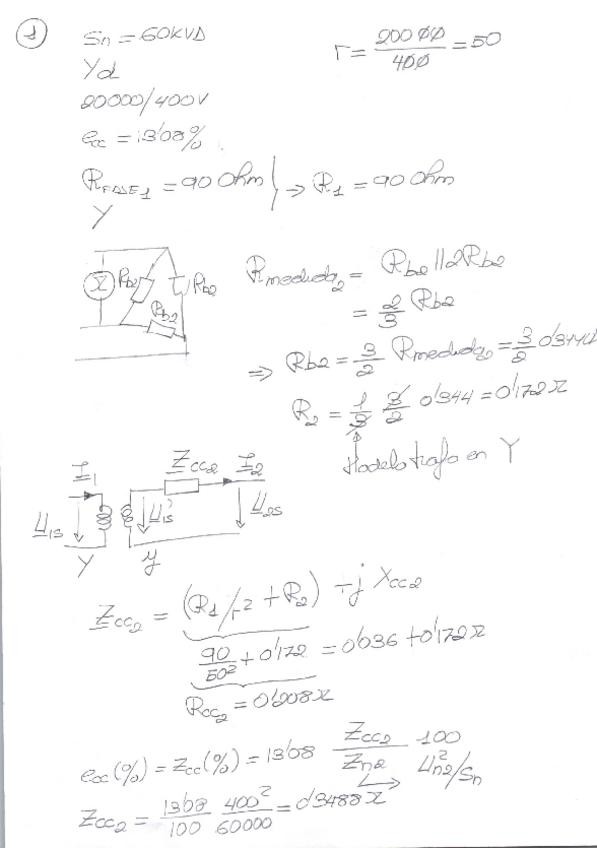 1
Sn = 60KVA
r = 20000/400 = 50
Yd
20000/400V
ecc = 13'08%
RFASE1 = 90 Ohm } ⇒ R1 = 90 Ohm
Y
Ω Rb2 Rb2 Rb2
Rmedida2 = Rb2 // 2Rb2
= 2/3 Rb2
⇒ Rb2 = 3/2 Rmedida2 = 3/2 0'344Ω
R2 = 1/3 3/2 0'344 = 0'172Ω
Modelo trafo en Y
I1 Zcc2 I2
U1s U1s' U2s
Y y
Zcc2 = (R1/r² + R2) + j Xcc2
90/50² + 0'172 = 0'036 + 0'172Ω
Rcc2 = 0'208Ω
ecc(%) = Zcc(%) = 13'08 Zcc2/Zn2 100
Un2²/Sn
Zcc2 = 13'08/100 400²/60000 = 0'3488Ω